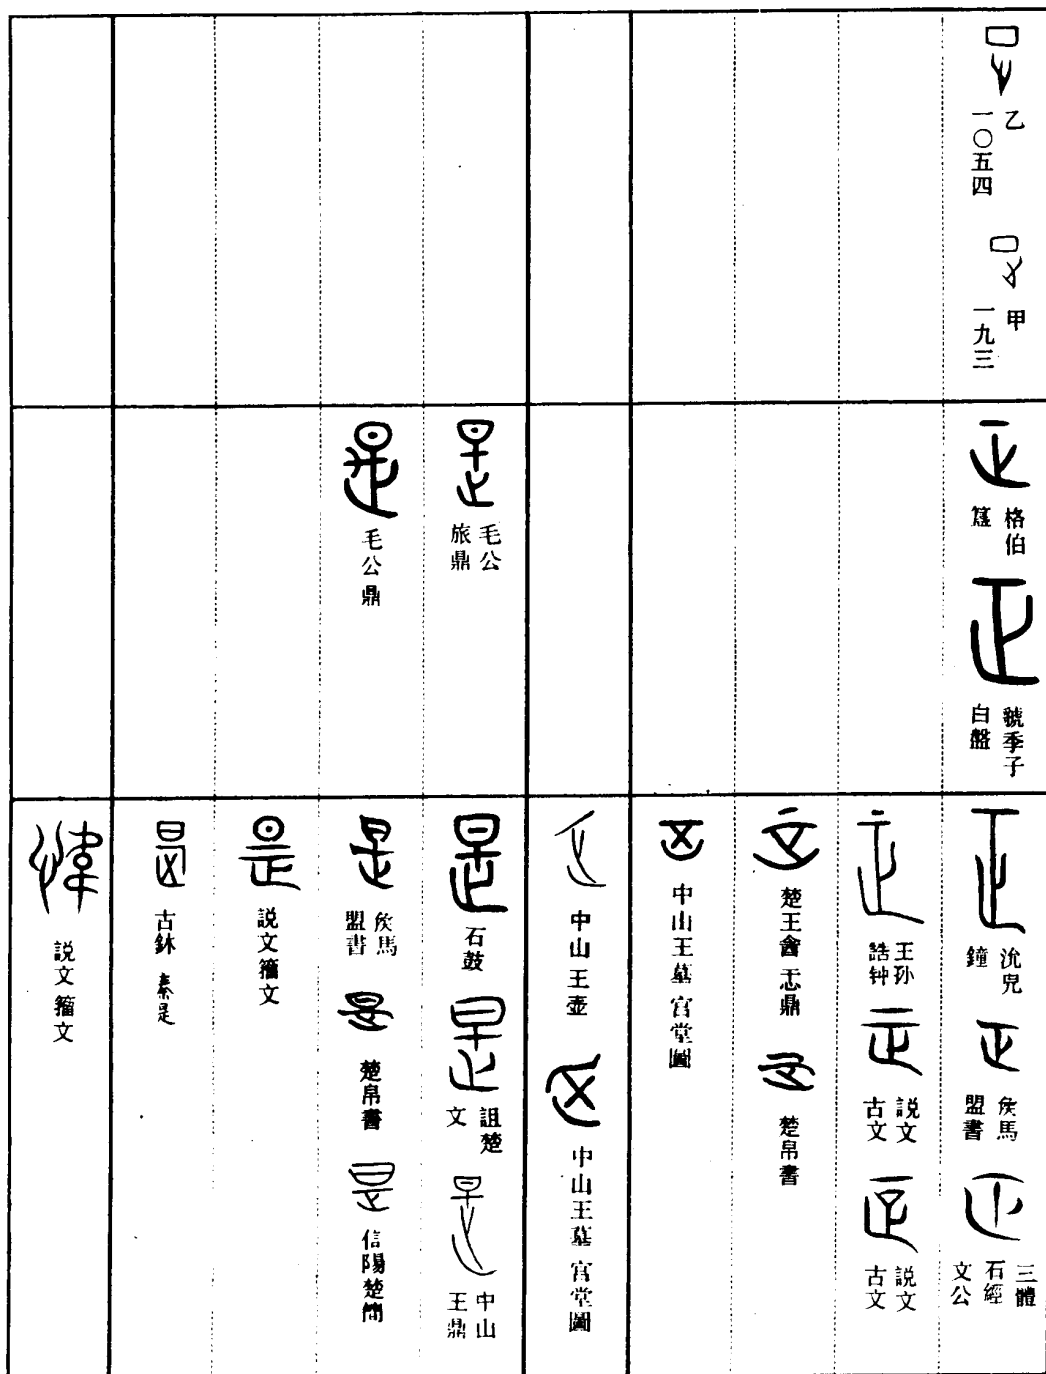 乙
一〇五四
甲
一九三
格伯
簋
虢季子
白盤
毛公
旅鼎
毛公鼎
沇兒
鐘
矦馬
盟書
三體
石經
文公
王孙
誥钟
説文
古文
説文
古文
楚王酓忎鼎
楚帛書
中山王墓宫堂圖
中山王壺
中山王墓宫堂圖
石鼓
詛楚
文
中山
王鼎
矦馬
盟書
楚帛書
信陽楚簡
説文籀文
古鉥 秦是
説文籀文